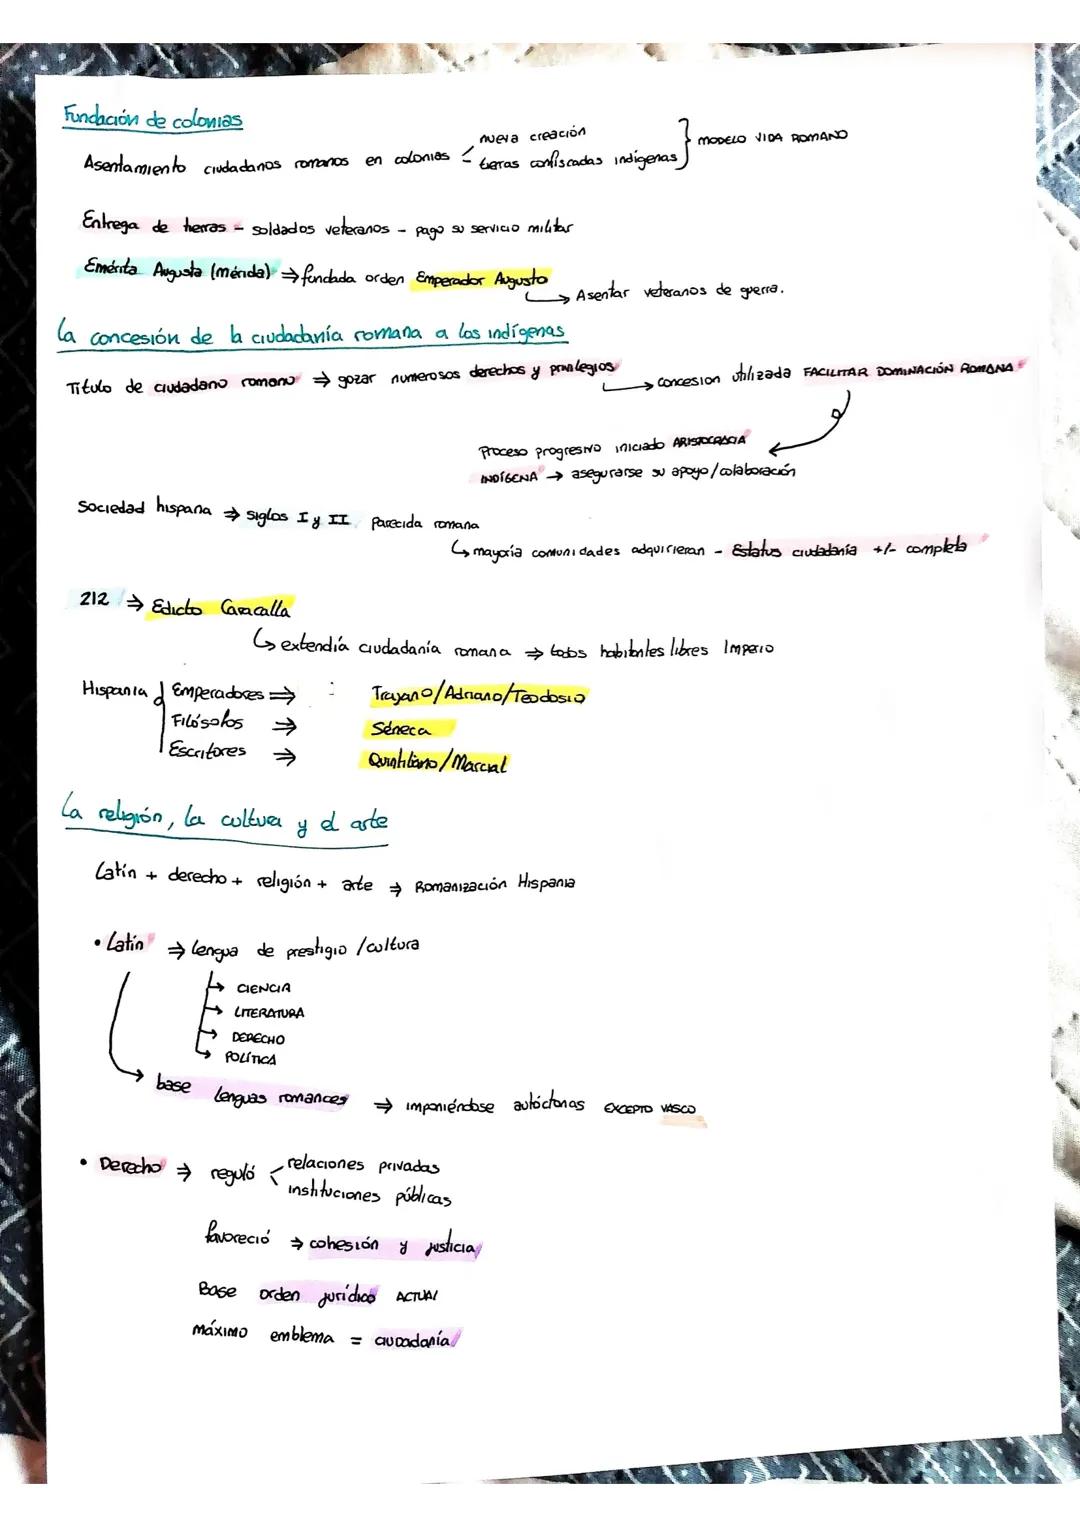 Fundación de colonias
Asentamiento ciudadanos romanos en colonias < nueva creación
tierras confiscadas indígenas } MODELO VIDA ROMANO
Entrega de tierras - soldados veteranos - pago su servicio militar
Emérita Augusta (mérida) ⇒ fundada orden Emperador Augusto
↳ Asentar veteranos de guerra.
La concesión de la ciudadanía romana a los indígenas
Título de ciudadano romano ⇒ gozar numerosos derechos y privilegios
↳ concesion utilizada FACILITAR DOMINACIÓN ROMANA
Proceso progresivo iniciado ARISTOCRACIA
INDÍGENA → asegurarse su apoyo/colaboración
Sociedad hispana ⇒ siglos I y II parecida romana
↳ mayoría comunidades adquirieran - Estatus ciudadanía +/- completa
212 ⇒ Edicto Caracalla
↳ extendía ciudadanía romana ⇒ todos habitantes libres Imperio
Hispania { Emperadores ⇒ : Trajano/Adriano/Teodosio
Filósofos ⇒ Séneca
Escritores ⇒ Quintiliano/Marcial
La religión, la cultura y el arte
Latín + derecho + religión + arte ⇒ Romanización Hispania
• Latín ⇒ lengua de prestigio /cultura
→ CIENCIA
→ LITERATURA
→ DERECHO
↳ POLÍTICA
→ base lenguas romances ⇒ imponiéndose autóctonas EXCEPTO VASCO
• Derecho ⇒ reguló < relaciones privadas
instituciones públicas
favoreció ⇒ cohesión y justicia
Base orden jurídico ACTUAL
máximo emblema = ciudadanía